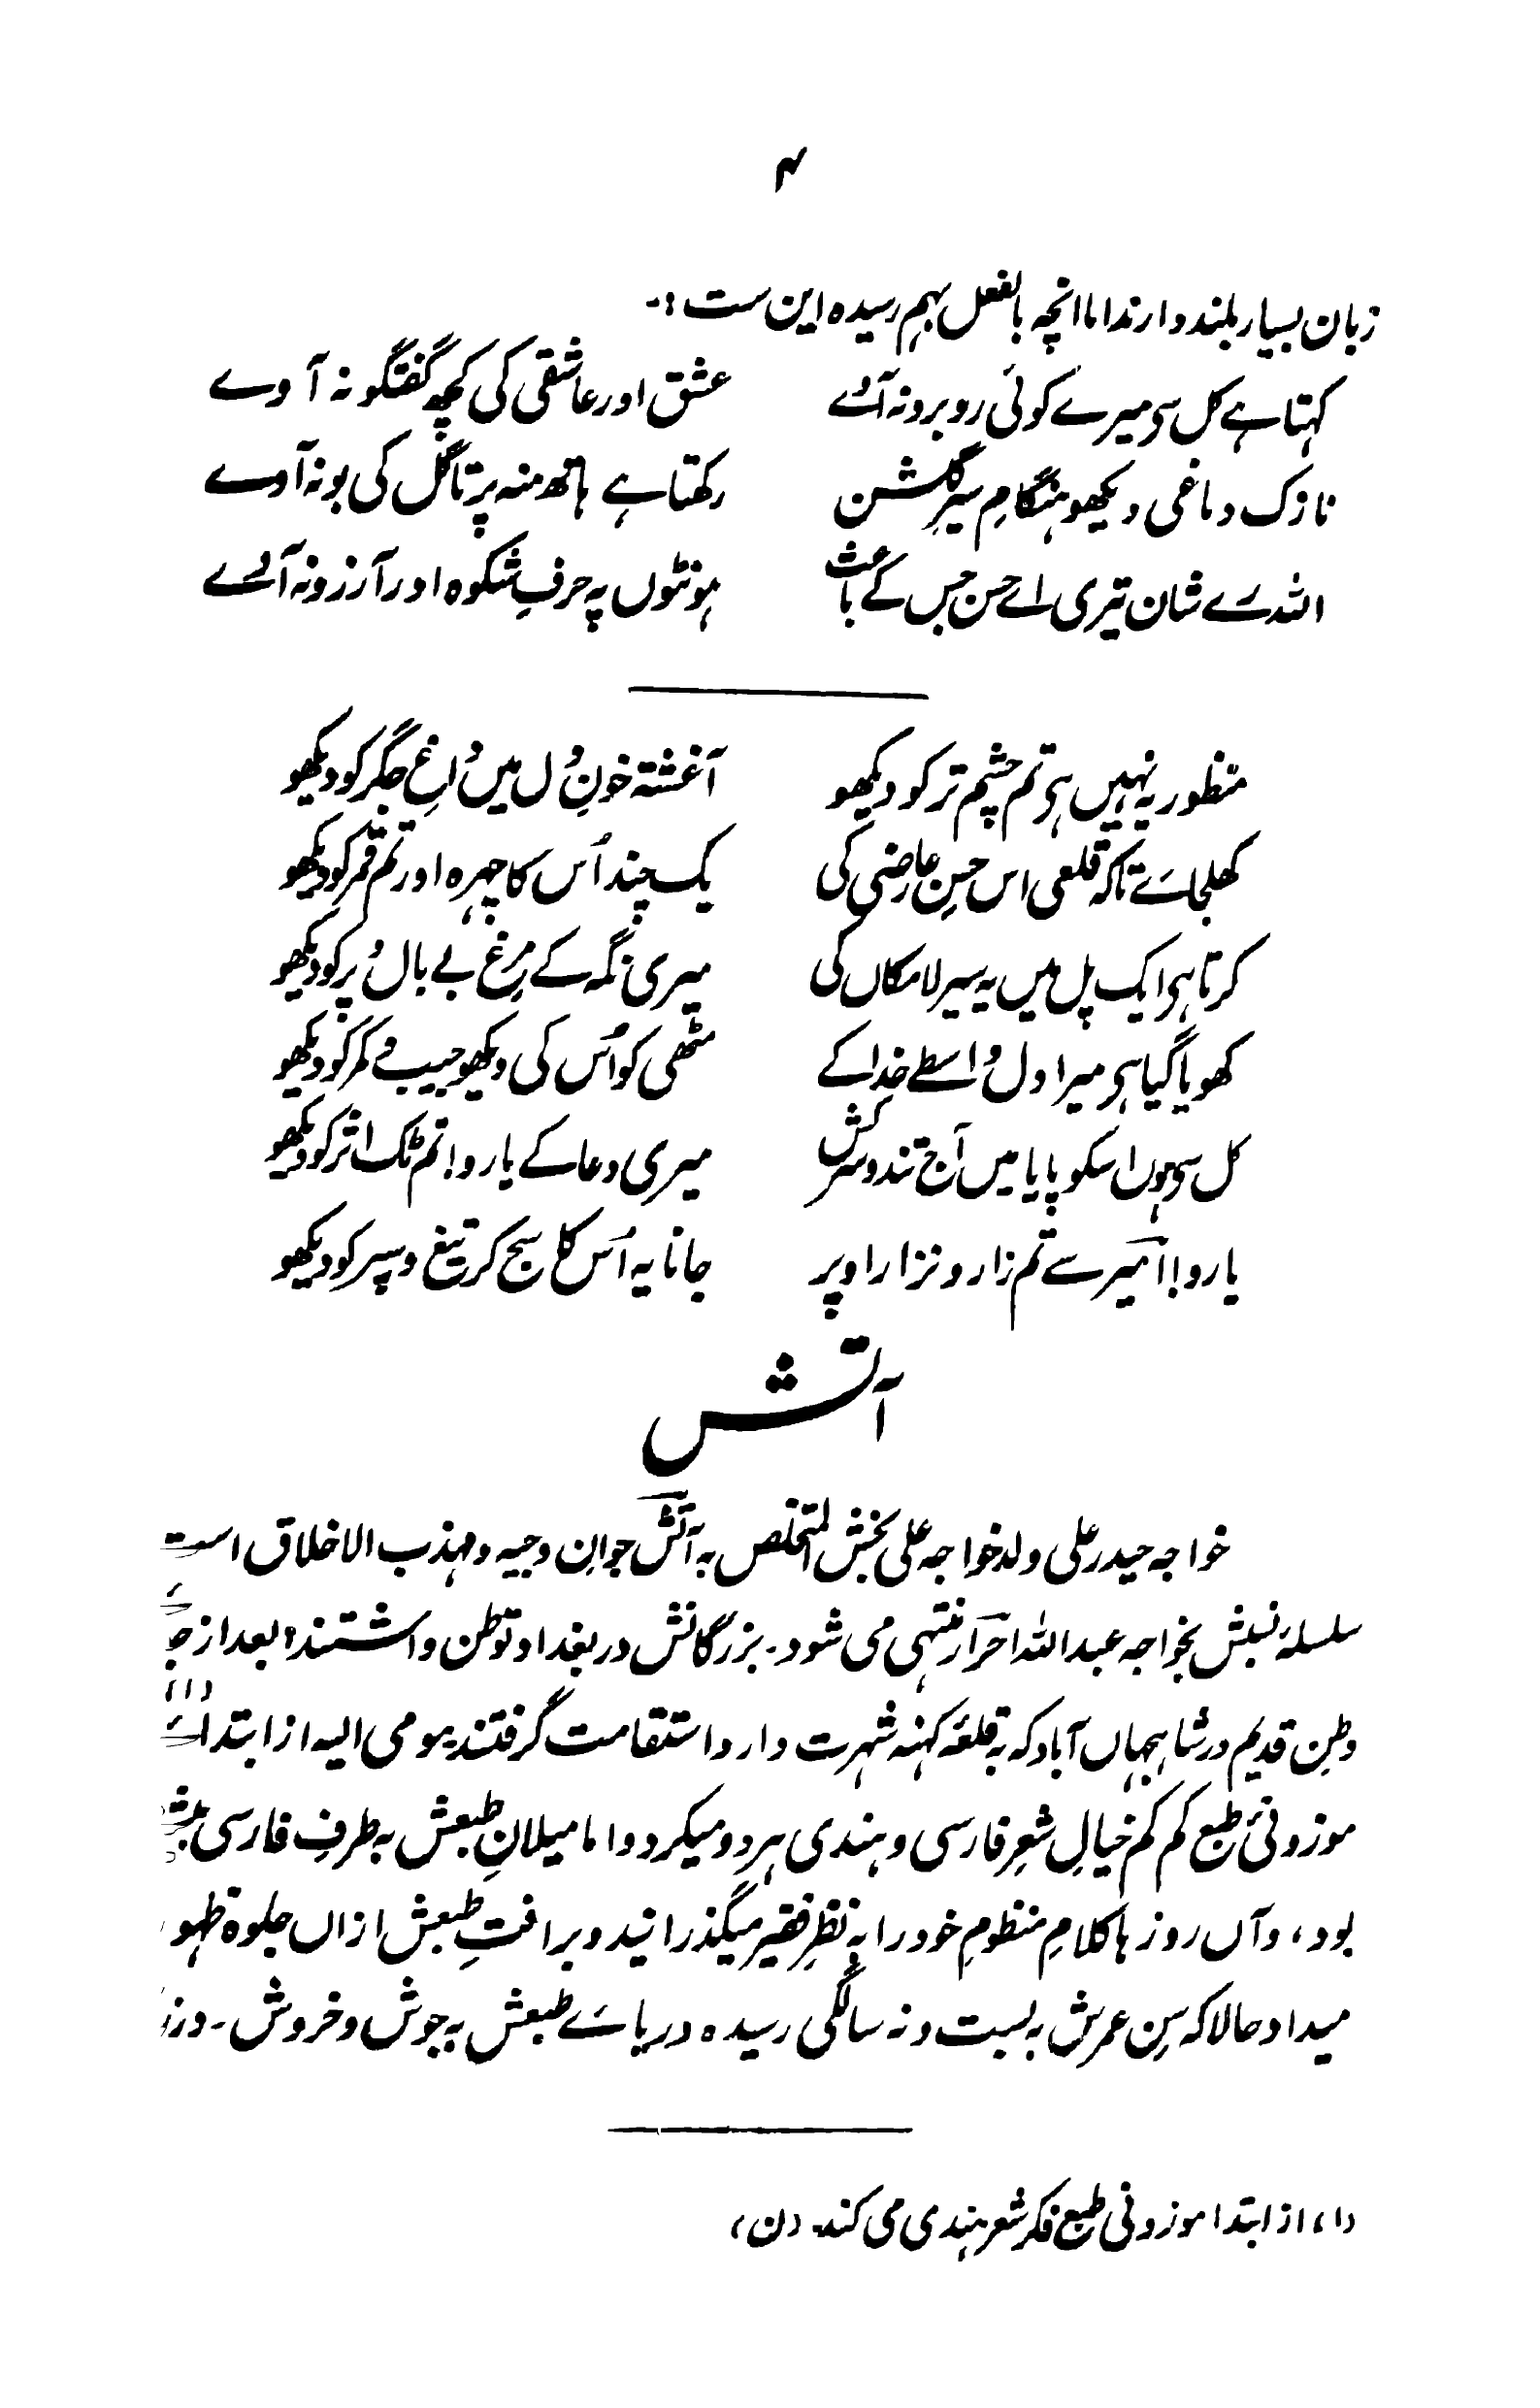 ۴
زبان بسیار بلند دارند اما انچہ بالفعل بہم رسیدہ این ست :-
کہتا ہے کل سی میرے کوئی روبرو نہ آئے عشق اور عاشقی کی کچھ گفتگو نہ آوے
نازک دماغی دیکھو ہنگامِ سیرِ گلشن رکھتا ہے ہاتھ منہ پر تا گل کی بو نہ آوے
اللہ رے شان تیری اے حسن جس کے باعث ہونٹوں پہ حرفِ شکوہ اور آرزو نہ آئے
منظور یہ نہیں ہی تم چشم تر کو دیکھو آغشتہ خونِ دل میں داغِ جگر کو دیکھو
کھلجائے تاکہ قلعی اس حسنِ عارضی کی یک چند اُس کا چہرہ اور تم قمر کو دیکھو
کرتا ہی ایک پل میں یہ سیر لامکاں کی میری نگہ کے مرغ بے بال و پر کو دیکھو
کھویا گیا ہی میرا دل واسطے خدا کے مٹھی کو اُس کی دیکھو جیب و کمر کو دیکھو
کل سی ہوں اسکو پایا میں آج تند و سرکش میری دعا کے یارو! تم ٹک اثر کو دیکھو
یارو! امیر سے تم زار و نزار اوپر جانا یہ اُس کا سج کر تیغ و سپر کو دیکھو
آتش
خواجہ حیدر علی ولد خواجہ علی بخش المتخلص بہ آتش جوانِ وجیہ و مہذب الاخلاق است
سلسلۂ نسبش بخواجہ عبداللہ احرار منتہی می شود۔ بزرگانش در بغداد توطن داشتند، بعد از
وطنِ قدیم در شاہجہاں آباد کہ بہ قلعۂ کہنہ شہرت دارد استقامت گرفتند۔ مومی الیہ از ابتدائے (۱)
موزونئ طبع کم کم خیالِ شعرِ فارسی و ہندی ہردو میکرد و اما میلانِ طبعش بہ طرفِ فارسی
بود، و آں روز ہا کلامِ منظومِ خود را بہ نظرِ فقیر میگذرانید و برافتِ طبعش ازاں جلوۂ
میداد حالا کہ سنِ عمرش بہ بست و نہ سالگی رسیدہ دریائے طبعش بہ جوش و خروش ۔
(۱) از ابتدا موزونی طبع فکر شعر ہندی می کند۔ (ن)